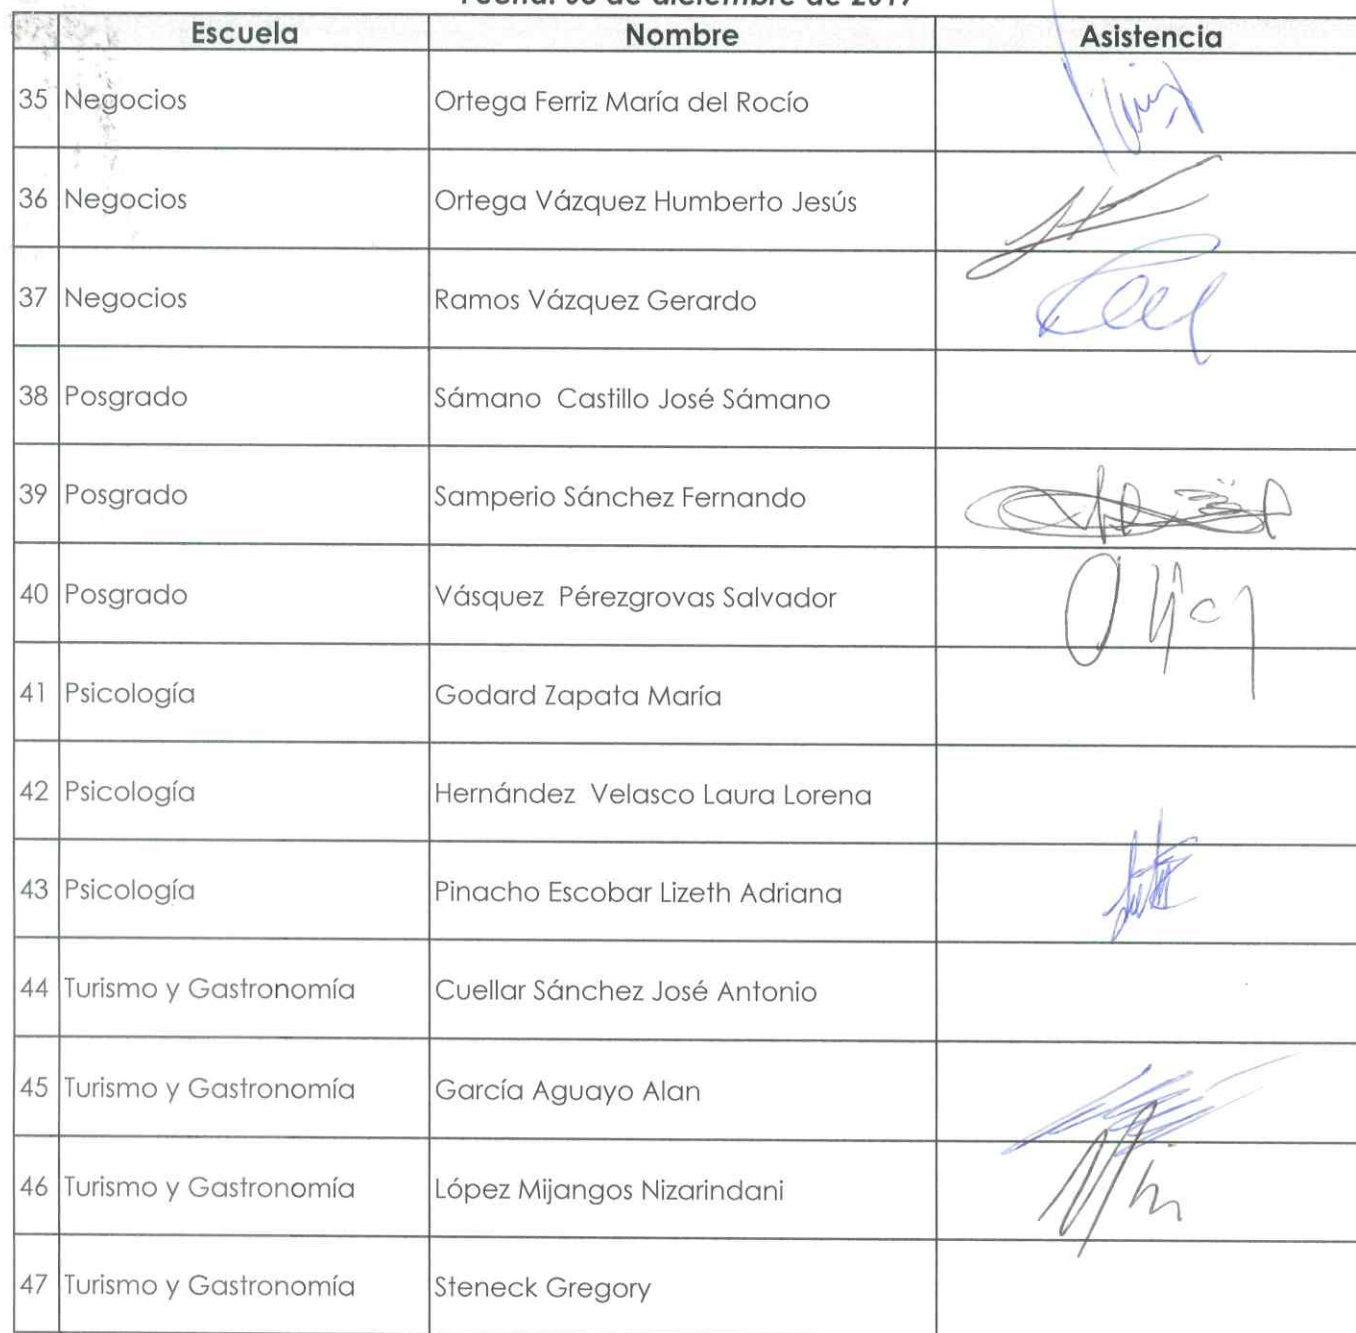 de diciembre de 2017
Escuela Nombre Asistencia
35 Negocios Ortega Ferriz María del Rocío
36 Negocios Ortega Vázquez Humberto Jesús
37 Negocios Ramos Vázquez Gerardo
38 Posgrado Sámano Castillo José Sámano
39 Posgrado Samperio Sánchez Fernando
40 Posgrado Vásquez Pérezgrovas Salvador
41 Psicología Godard Zapata María
42 Psicología Hernández Velasco Laura Lorena
43 Psicología Pinacho Escobar Lizeth Adriana
44 Turismo y Gastronomía Cuellar Sánchez José Antonio
45 Turismo y Gastronomía García Aguayo Alan
46 Turismo y Gastronomía López Mijangos Nizarindani
47 Turismo y Gastronomía Steneck Gregory